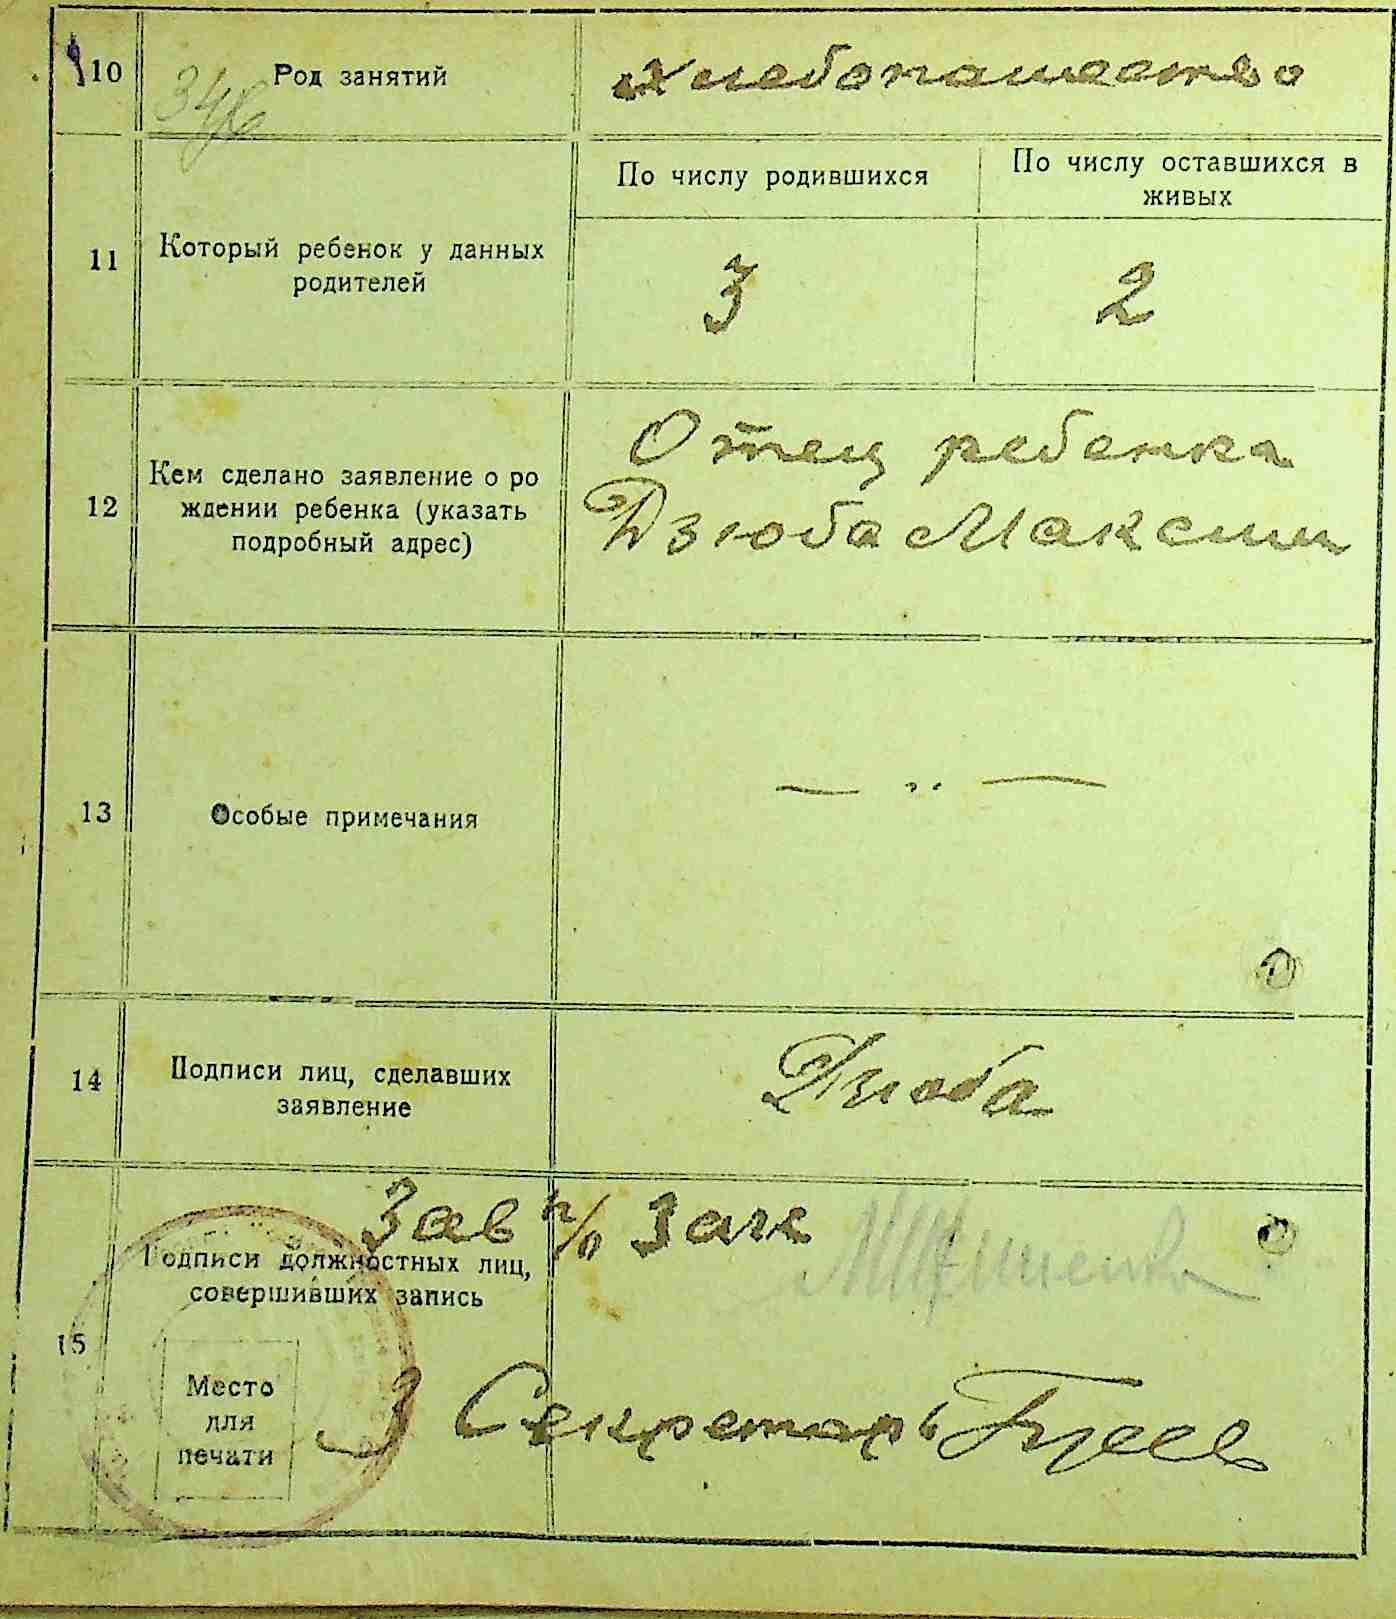 10 Род занятий хлебопашество
346
По числу родившихся По числу оставшихся в
живых
11 Который ребенок у данных
родителей
3 2
12 Кем сделано заявление о ро
ждении ребенка (указать
подробный адрес)
Отец ребенка
Дзюба Максим
13 Особые примечания — „ —
14 Подписи лиц, сделавших
заявление
Дзюба
Зав п/о Загс
15 Подписи должностных лиц,
совершивших запись
Место
для
печати
З Секретарь